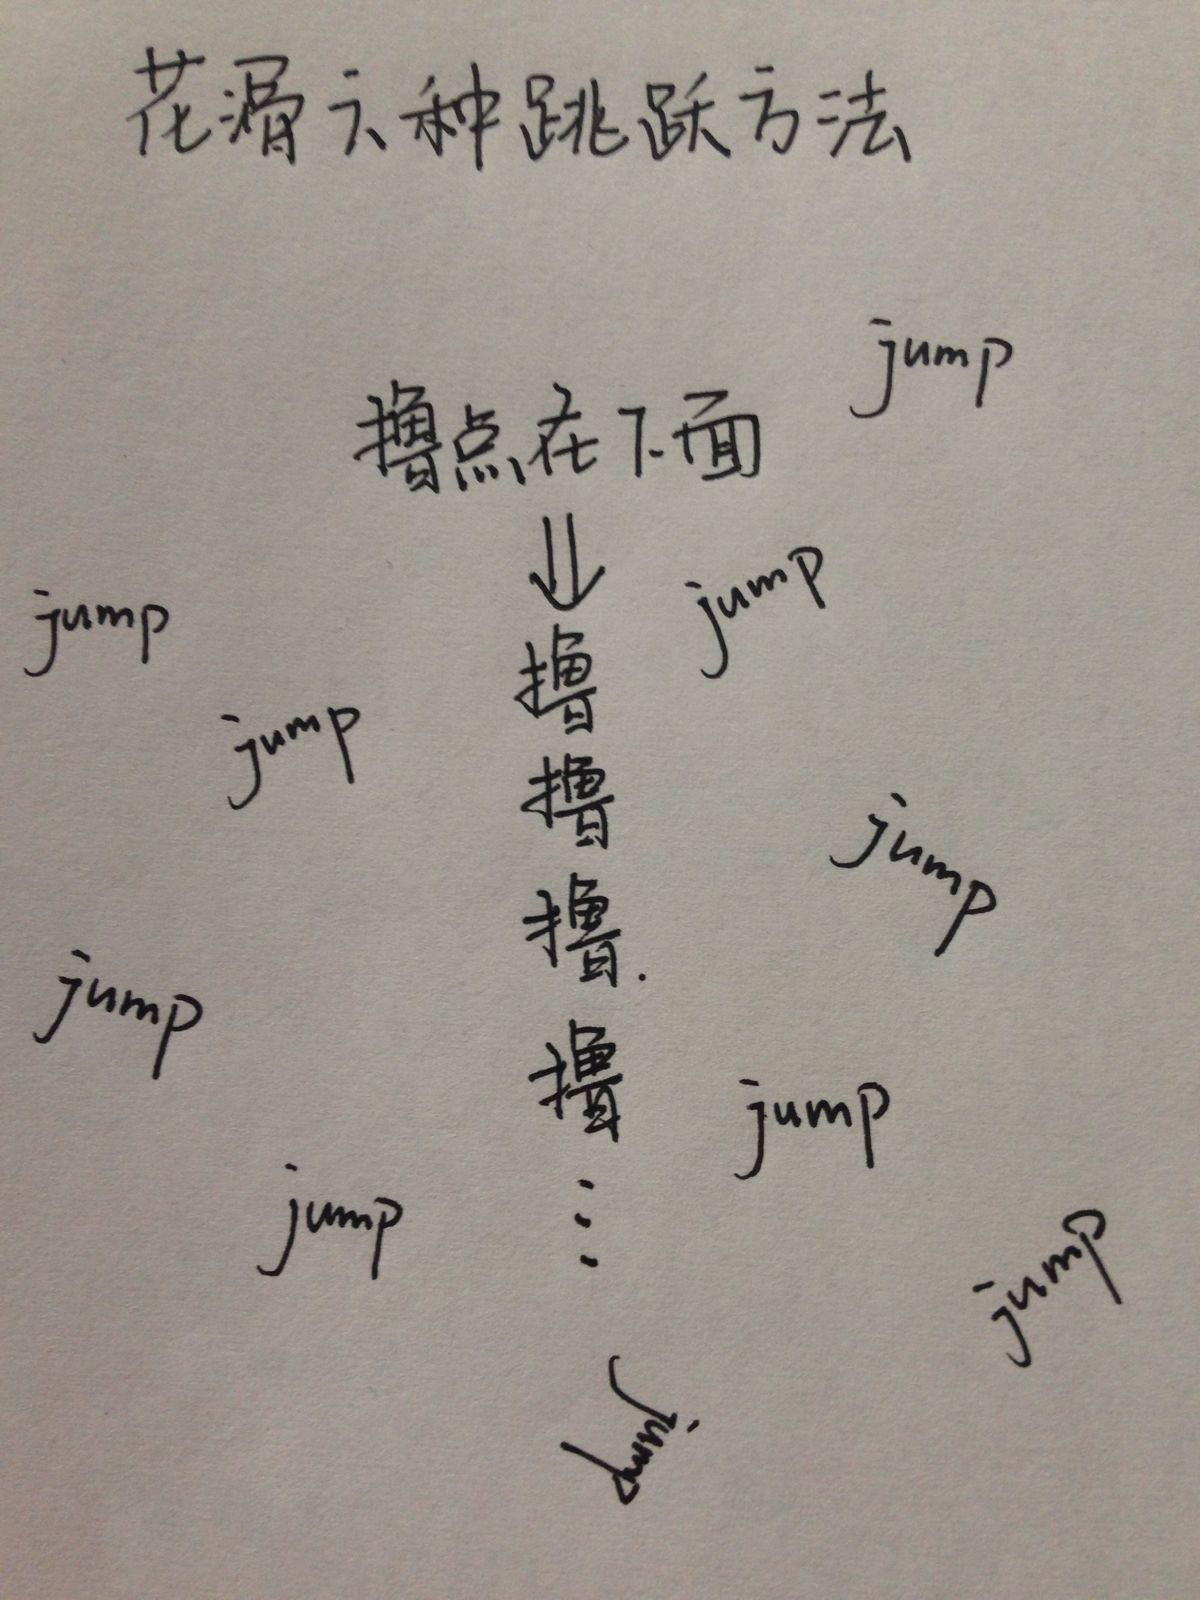 花滑六种跳跃方法
jump
撸点在下面
jump
jump
撸
jump
撸
jump
撸
jump
撸
jump
jump
jump
jump